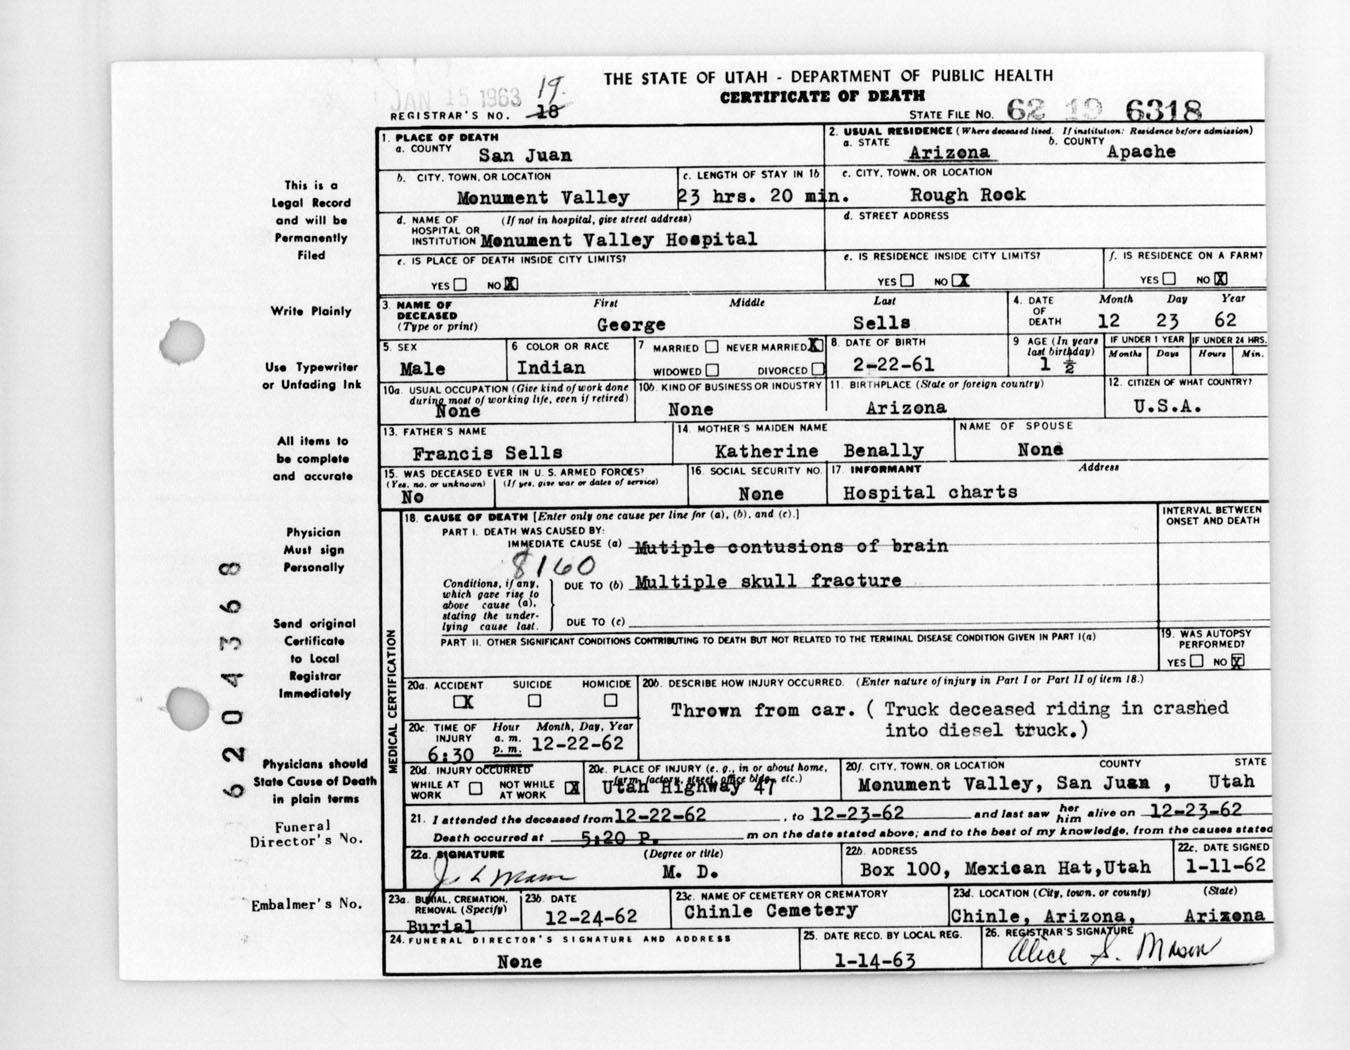 THE STATE OF UTAH - DEPARTMENT OF PUBLIC HEALTH
CERTIFICATE OF DEATH
JAN 15 1963
19.
REGISTRAR'S NO. 18
STATE FILE NO. 62 19 6318
1. PLACE OF DEATH
a. COUNTY San Juan
2. USUAL RESIDENCE (Where deceased lived. If institution: Residence before admission)
a. STATE Arizona b. COUNTY Apache
b. CITY, TOWN, OR LOCATION Monument Valley
c. LENGTH OF STAY IN 1b 23 hrs. 20 min.
c. CITY, TOWN, OR LOCATION Rough Rock
d. NAME OF HOSPITAL OR INSTITUTION (If not in hospital, give street address) Monument Valley Hospital
d. STREET ADDRESS
e. IS PLACE OF DEATH INSIDE CITY LIMITS?
YES NO X
e. IS RESIDENCE INSIDE CITY LIMITS?
YES NO X
f. IS RESIDENCE ON A FARM?
YES NO X
3. NAME OF DECEASED (Type or print)
First Middle Last
George Sells
4. DATE OF DEATH Month Day Year
12 23 62
5. SEX Male
6 COLOR OR RACE Indian
7 MARRIED NEVER MARRIED X
WIDOWED DIVORCED
8. DATE OF BIRTH 2-22-61
9 AGE (In years last birthday) 1 ½
IF UNDER 1 YEAR Months Days
IF UNDER 24 HRS. Hours Min.
10a. USUAL OCCUPATION (Give kind of work done during most of working life, even if retired) None
10b. KIND OF BUSINESS OR INDUSTRY None
11. BIRTHPLACE (State or foreign country) Arizona
12. CITIZEN OF WHAT COUNTRY? U.S.A.
13. FATHER'S NAME Francis Sells
14. MOTHER'S MAIDEN NAME Katherine Benally
NAME OF SPOUSE None
15. WAS DECEASED EVER IN U. S. ARMED FORCES?
(Yes, no. or unknown) (If yes, give war or dates of service)
No
16. SOCIAL SECURITY NO. None
17. INFORMANT Address
Hospital charts
MEDICAL CERTIFICATION
18. CAUSE OF DEATH [Enter only one cause per line for (a), (b), and (c).]
INTERVAL BETWEEN ONSET AND DEATH
PART I. DEATH WAS CAUSED BY:
IMMEDIATE CAUSE (a) Mutiple contusions of brain
8160
Conditions, if any, which gave rise to above cause (a), stating the underlying cause last.
DUE TO (b) Multiple skull fracture
DUE TO (c)
PART II. OTHER SIGNIFICANT CONDITIONS CONTRIBUTING TO DEATH BUT NOT RELATED TO THE TERMINAL DISEASE CONDITION GIVEN IN PART I(a)
19. WAS AUTOPSY PERFORMED?
YES NO X
20a. ACCIDENT SUICIDE HOMICIDE
X
20b. DESCRIBE HOW INJURY OCCURRED. (Enter nature of injury in Part I or Part II of item 18.)
Thrown from car. ( Truck deceased riding in crashed
into diesel truck.)
20c. TIME OF INJURY Hour a. m. p. m. Month, Day, Year
6:30 12-22-62
20d. INJURY OCCURRED
WHILE AT WORK NOT WHILE AT WORK X
20e. PLACE OF INJURY (e. g., in or about home, farm, factory, street, office bldg., etc.)
Utah Highway 47
20f. CITY, TOWN, OR LOCATION COUNTY STATE
Monument Valley, San Juan , Utah
21. I attended the deceased from 12-22-62, to 12-23-62 and last saw her him alive on 12-23-62
Death occurred at 5:20 P. m on the date stated above; and to the best of my knowledge, from the causes stated
22a. SIGNATURE (Degree or title)
M. D.
22b. ADDRESS
Box 100, Mexican Hat,Utah
22c. DATE SIGNED
1-11-62
23a. BURIAL, CREMATION, REMOVAL (Specify) Burial
23b. DATE 12-24-62
23c. NAME OF CEMETERY OR CREMATORY Chinle Cemetery
23d. LOCATION (City, town, or county) (State)
Chinle, Arizona, Arizona
24. FUNERAL DIRECTOR'S SIGNATURE AND ADDRESS
None
25. DATE RECD. BY LOCAL REG.
1-14-63
26. REGISTRAR'S SIGNATURE
Alice S. Mason
This is a
Legal Record
and will be
Permanently
Filed
Write Plainly
Use Typewriter
or Unfading Ink
All items to
be complete
and accurate
Physician
Must sign
Personally
Send original
Certificate
to Local
Registrar
Immediately
Physicians should
State Cause of Death
in plain terms
Funeral
Director's No.
Embalmer's No.
6204368